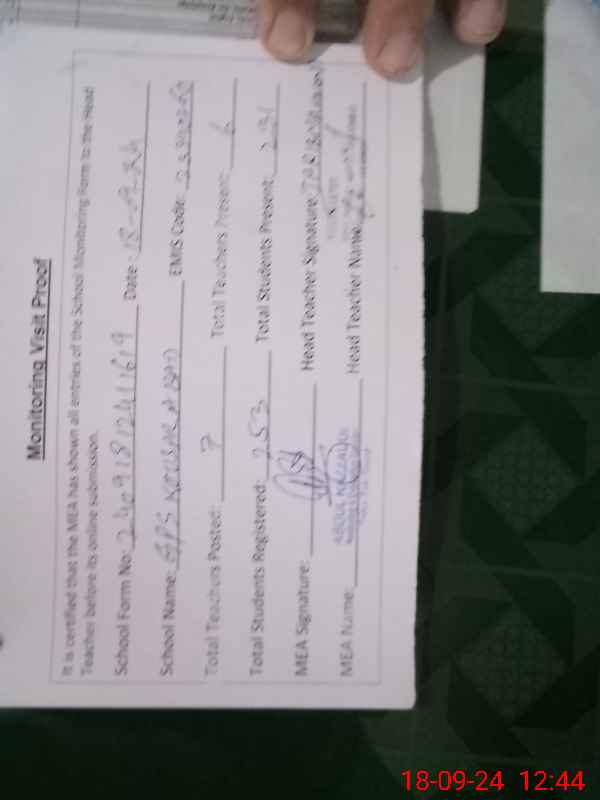 Monitoring Visit Proof
It is certified that the MEA has shown all entries of the School Monitoring Form to the Head
Teacher before its online submission.
School Form No: 240918124111619 Date: 18-9-24
School Name: GPS KOUSAR ABAD EMIS Code:
Total Teachers Posted: 7 Total Teachers Present: 6
Total Students Registered: 253 Total Students Present: 231
MEA Signature: Head Teacher Signature:
MEA Name: Head Teacher Name:
18-09-24 12:44